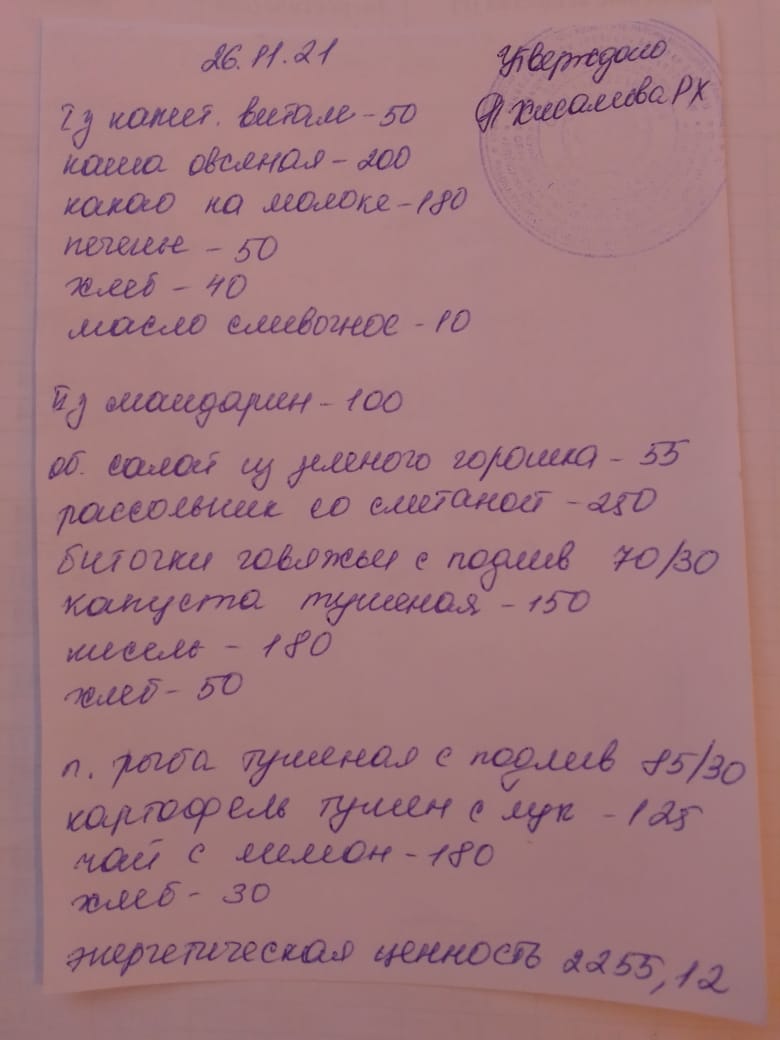 26.11.21
Утверждаю
Хисамова РХ
Iз напит. витам - 50
каша овсяная - 200
какао на молоке - 180
печенье - 50
хлеб - 40
масло сливочное - 10
IIз мандарин - 100
об. салат из зеленого горошка - 55
рассольник со сметаной - 250
биточки говяжьи с подлив 70/30
капуста тушеная - 150
кисель - 180
хлеб - 50
п. рыба тушеная с подлив 85/30
картофель тушен с лук - 125
чай с лимон - 180
хлеб - 30
энергетическая ценность 2255,12